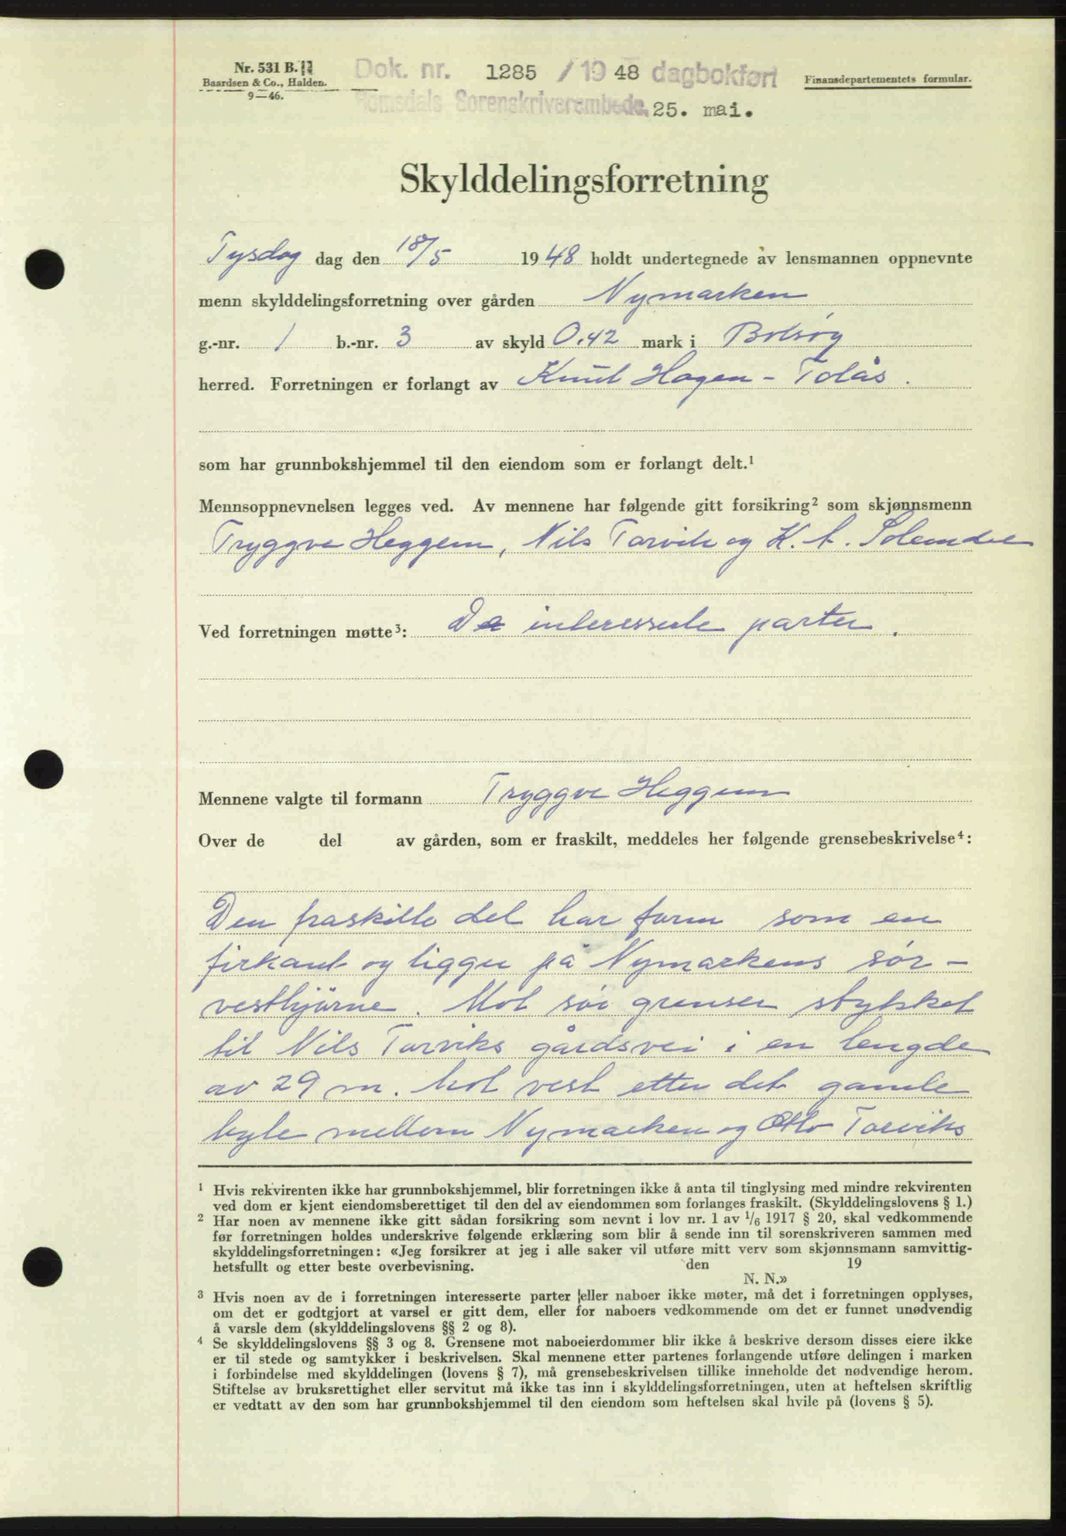 Nr. 531 B.
Baardsen & Co., Halden.
9—46.
Dok. nr. 1285 / 1948 dagbokført
Romsdals Sorenskriverembede, 25. mai.
Finansdepartementets formular.
Skylddelingsforretning
Tysdag dag den 18/5 1948 holdt undertegnede av lensmannen oppnevnte
menn skylddelingsforretning over gården Nymarken
g.-nr. 1 b.-nr. 3 av skyld 0,42 mark i Bolsøy
herred. Forretningen er forlangt av Knut Hagen - Tolås.
som har grunnbokshjemmel til den eiendom som er forlangt delt.¹
Mennsoppnevnelsen legges ved. Av mennene har følgende gitt forsikring² som skjønnsmenn
Tryggve Heggem, Nils Torvik og K. A. Solemdal
Ved forretningen møtte³: De interesserte parter.
Mennene valgte til formann Tryggve Heggem
Over de del av gården, som er fraskilt, meddeles her følgende grensebeskrivelse⁴:
Den fraskilte del har form som en
firkant og ligger på Nymarkens sør-
vesthjørne. Mot sør grenser stykket
til Nils Torviks gårdsvei i en lengde
av 29 m. Mot vest etter det gamle
byte mellom Nymarken og Otto Torviks
¹ Hvis rekvirenten ikke har grunnbokshjemmel, blir forretningen ikke å anta til tinglysing med mindre rekvirenten
ved dom er kjent eiendomsberettiget til den del av eiendommen som forlanges fraskilt. (Skylddelingslovens § 1.)
² Har noen av mennene ikke gitt sådan forsikring som nevnt i lov nr. 1 av 1/6 1917 § 20, skal vedkommende
før forretningen holdes underskrive følgende erklæring som blir å sende inn til sorenskriveren sammen med
skylddelingsforretningen: «Jeg forsikrer at jeg i alle saker vil utføre mitt verv som skjønnsmann samvittig-
hetsfullt og etter beste overbevisning. den 19
N. N.»
³ Hvis noen av de i forretningen interesserte parter eller naboer ikke møter, må det i forretningen opplyses,
om det er godtgjort at varsel er gitt dem, eller for naboers vedkommende om det er funnet unødvendig
å varsle dem (skylddelingslovens §§ 2 og 8).
⁴ Se skylddelingslovens §§ 3 og 8. Grensene mot naboeierdommer blir ikke å beskrive dersom disses eiere ikke
er til stede og samtykker i beskrivelsen. Skal mennene etter partenes forlangende utføre delingen i marken
i forbindelse med skylddelingen (lovens § 7), må grensebeskrivelsen tillike inneholde det nødvendige herom.
Stiftelse av bruksrettighet eller servitut må ikke tas inn i skylddelingsforretningen, uten at heftelsen skriftlig
er vedtatt av den som har grunnbokshjemmel til den eiendom som heftelsen skal hvile på (lovens § 5).